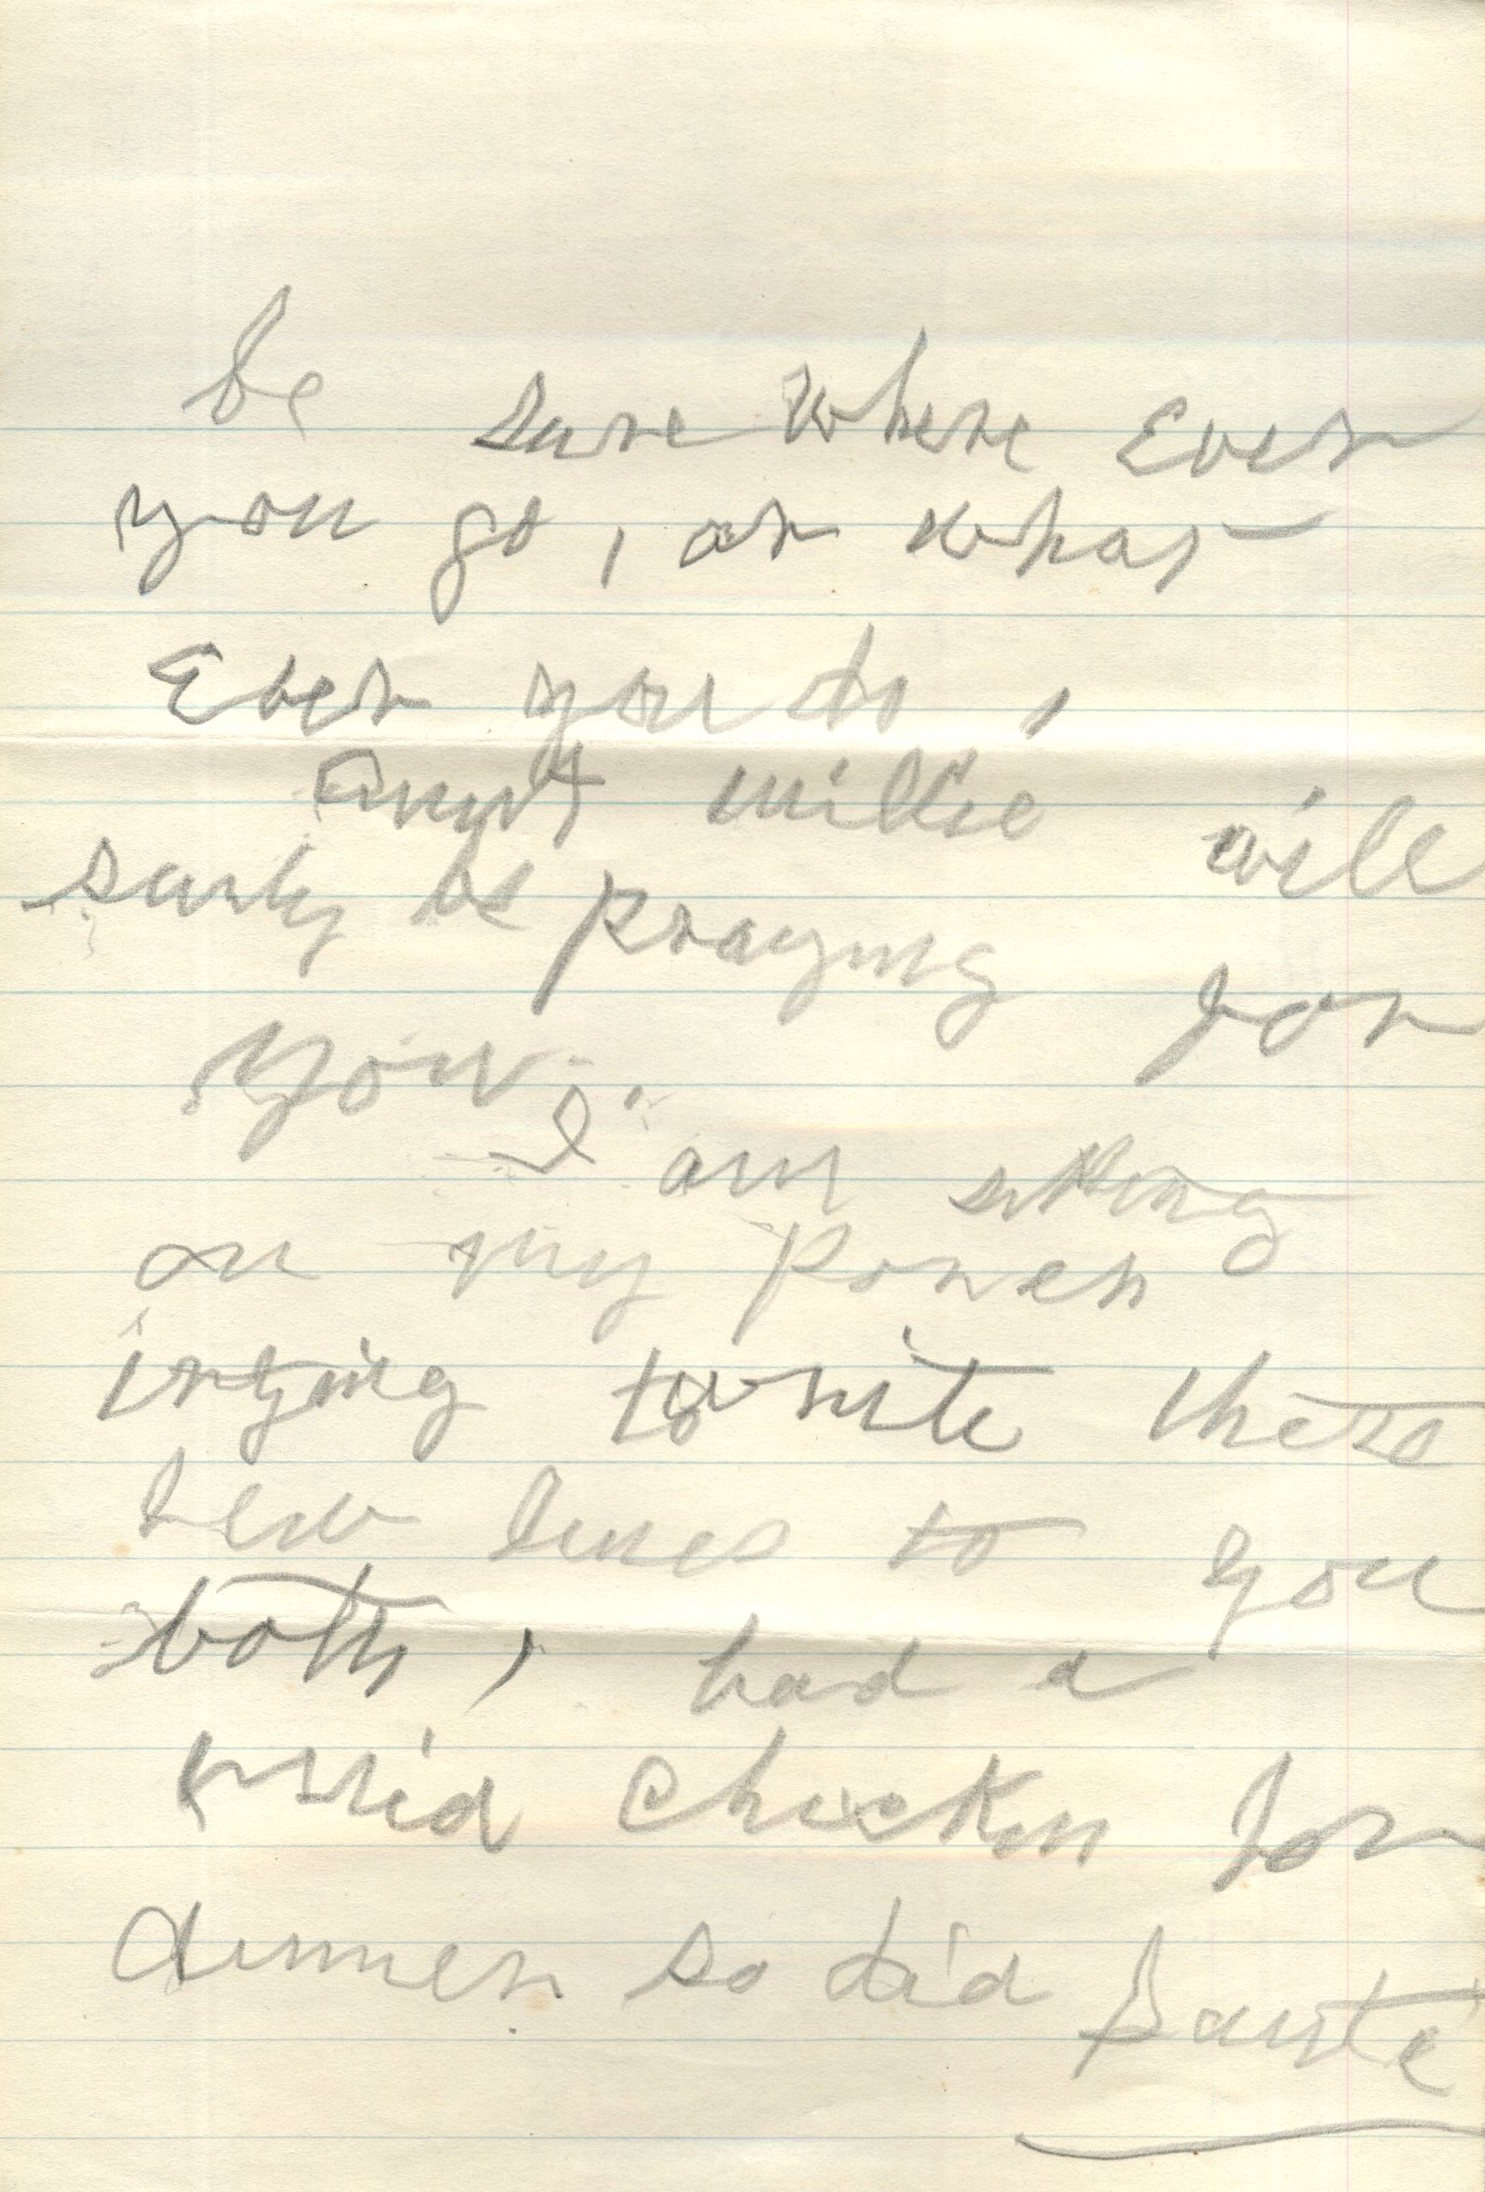 be sure where Ever
you go, or what
Ever you do,
Aunt Millie will
surly be praying for
you. I am sitting
on my porch
trying to write these
few lines to you
both, had a
fried chicken for
dinner so did